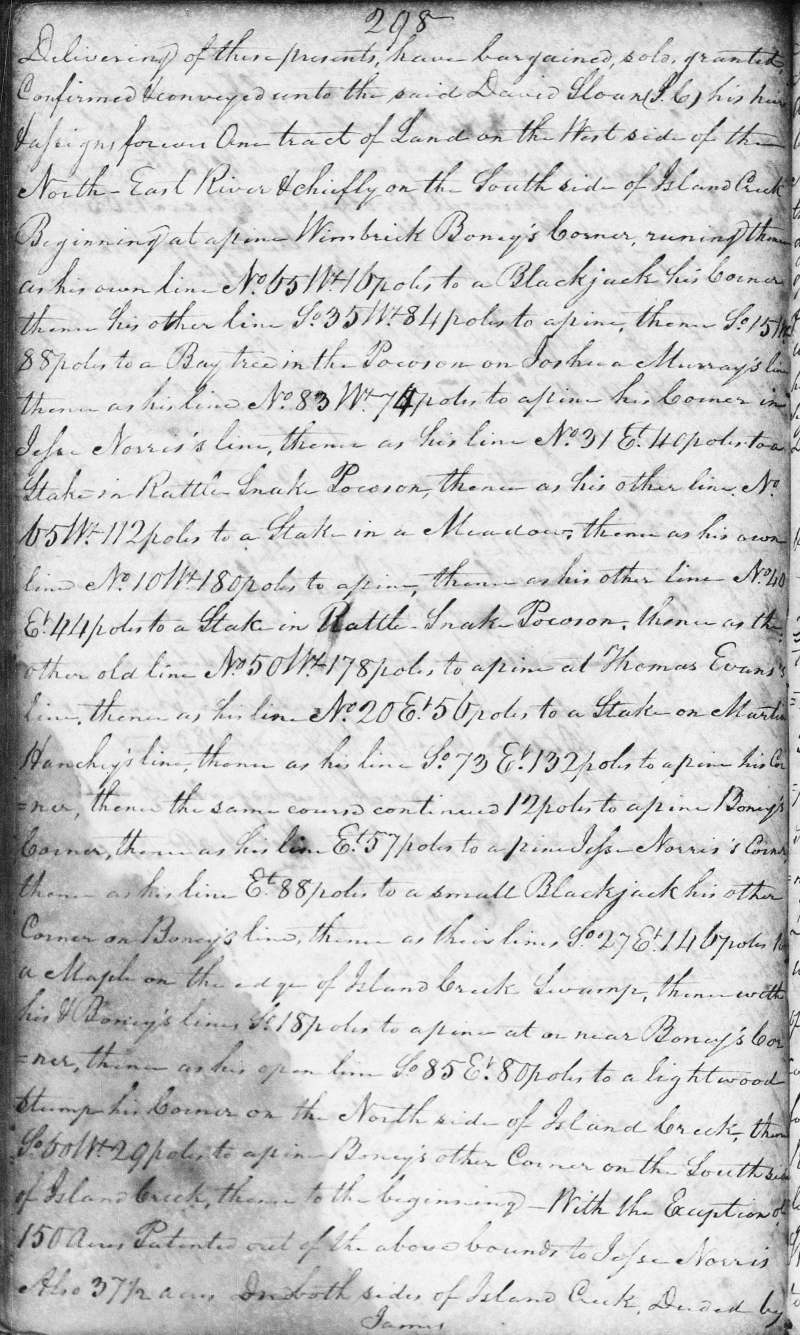 298
Delivering of these presents, have bargained, sold, granted,
Confirmed & conveyed unto the said David Sloan (S. C) his heirs
& assigns forever One tract of Land on the West side of the
North-East River & chiefly on the South side of Island Creek
Beginning at a pine Wimbrick Boney's Corner, runing thence
as his own line No. 65 Wt. 16 poles to a Blackjack his Corner
thence his other line So. 35 Wt. 84 poles to a pine, thence So. 15 Wt
88 poles to a Bay tree in the Pocoson on Joshua Murray's line
thence as his line No. 83 Wt. 74 poles to a pine his Corner in
Jesse Norris's line, thence as his line No. 31 Et. 40 poles to a
Stake in Rattle Snake Pocoson, thence as his other line No.
65 Wt. 112 poles to a Stake in a Meadow, thence as his own
line No. 10 Wt. 180 poles to a pine, thence as his other line No. 40
Et. 44 poles to a Stake in Rattle Snake Pocoson, thence as the
other old line No. 50 Wt. 178 poles to a pine at Thomas Evans's
line, thence as his line No. 20 Et. 56 poles to a Stake on Martin
Hanchey's line, thence as his line So. 73 Et. 132 poles to a pine his Cor
=ner, thence the same course continued 12 poles to a pine Boney's
Corner, thence as his line Et. 57 poles to a pine Jesse Norris's Corner
thence as his line Et. 88 poles to a small Blackjack his other
Corner on Boney's line, thence as their lines So. 27 Et. 146 poles to
a Maple on the edge of Island Creek Swamp, thence with
his & Boney's lines So. 18 poles to a pine at or near Boney's Cor
=ner, thence as his open line So. 85 Et. 80 poles to a lightwood
Stump his Corner on the North side of Island Creek, thence
So. 60 Wt. 29 poles to a pine Boney's other Corner on the South side
of Island Creek, thence to the beginning - With the Exception of
150 Acres Patented out of the above bounds to Jesse Norris
Also 37 1/2 acres On both sides of Island Creek, Deeded by
James